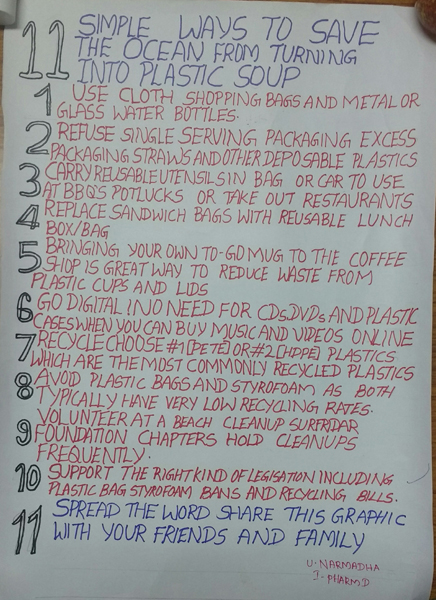 11 SIMPLE WAYS TO SAVE
THE OCEAN FROM TURNING
INTO PLASTIC SOUP
1 USE CLOTH SHOPPING BAGS AND METAL OR
GLASS WATER BOTTLES.
2 REFUSE SINGLE SERVING PACKAGING EXCESS
PACKAGING STRAWS AND OTHER DEPOSABLE PLASTICS
3 CARRY REUSABLE UTENSILS IN BAG OR CAR TO USE
AT BBQ'S POTLUCKS OR TAKE OUT RESTAURANTS
4 REPLACE SANDWICH BAGS WITH REUSABLE LUNCH
BOX/BAG
5 BRINGING YOUR OWN TO-GO MUG TO THE COFFEE
SHOP IS GREAT WAY TO REDUCE WASTE FROM
PLASTIC CUPS AND LIDS
6 GO DIGITAL! NO NEED FOR CDs,DVDs AND PLASTIC
CASES WHEN YOU CAN BUY MUSIC AND VIDEOS ONLINE
7 RECYCLE CHOOSE #1[PETE] OR #2[HDPE] PLASTICS
WHICH ARE THE MOST COMMONLY RECYCLED PLASTICS
8 AVOID PLASTIC BAGS AND STYROFOAM AS BOTH
TYPICALLY HAVE VERY LOW RECYCLING RATES.
9 VOLUNTEER AT A BEACH CLEANUP SURFRIDAR
FOUNDATION CHAPTERS HOLD CLEANUPS
FREQUENTLY.
10 SUPPORT THE RIGHT KIND OF LEGISATION INCLUDING
PLASTIC BAG STYROFOAM BANS AND RECYCLING BILLS.
11 SPREAD THE WORD SHARE THIS GRAPHIC
WITH YOUR FRIENDS AND FAMILY
U-NARMADHA
I-PHARMD